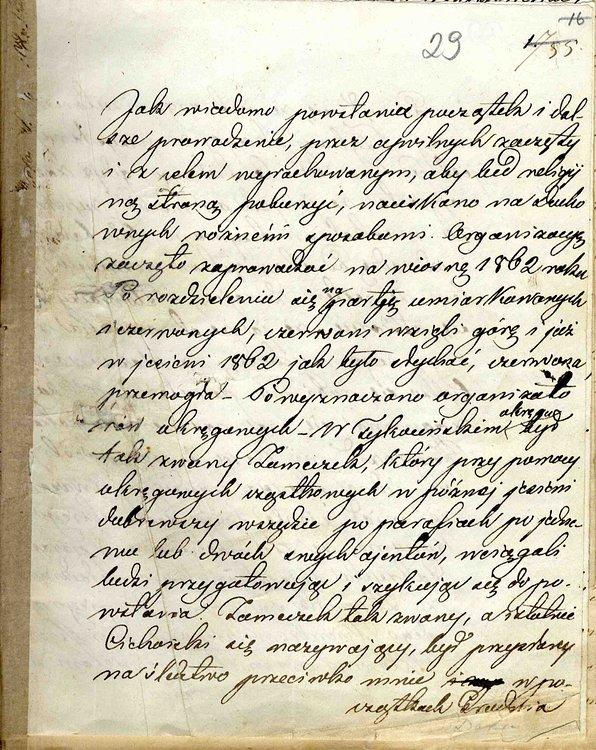 16
29
755
Jak wiadomo powstania początek i dal-
sze prowadzenie, przez cywilnych zaczęty
i z celem wyrachowanym, aby lud religij
ną stroną poburzyć, naciskano na ducho
wnych rożnemi sposobami. Organizacyę
zaczęto zaprowadzać na wiosnę 1862 roku
Po rozdzieleniu się na partyę umiarkowanych
i czerwonych, czerwoni wzięli górę i już
w jesieni 1862 jak było słychać, czerwona
przemogła - Powyznaczano organizato
rów okręgowych - W Tykocińskim okręgu był
tak zwany Zameczek, który przy pomocy
okręgowych cząstkowych w późnej jesieni
dobrawszy wszędzie po parafiach po jedne
mu lub dwóch innych ajentów, wciągali
ludzi przygotowując i szykując się do po-
wstania. Zameczek tak zwany, a istotnie
Cichorski się nazywający, był przysłany
na śledztwo przeciwko mnie w po-
czątkach Grudnia